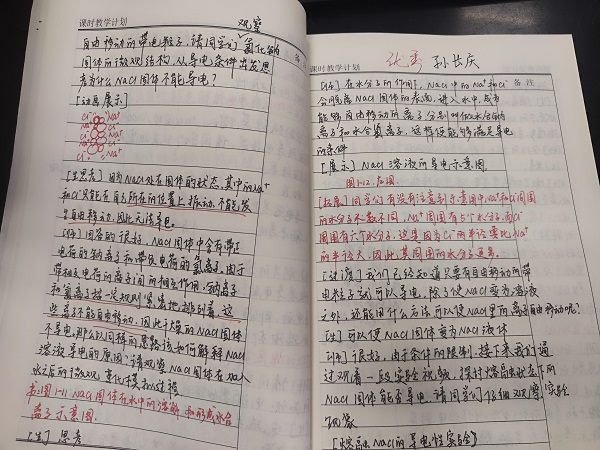 课时教学计划
观察
自由移动的带电粒子,请同学们氯化钠的
固体的微观结构,从导电条件出发思
考为什么NaCl固体不能导电?
[动画展示]
Cl⁻ Na⁺
Na⁺ Cl⁻
Cl⁻ Na⁺
Na⁺ Cl⁻
[生思考] 因为NaCl处在固体的状态,其中的Na⁺
和Cl⁻只能在自己所在的位置上振动,不能发
生自由移动,因此无法导电。
[师] 回答的很好,NaCl固体中含有带正
电荷的钠离子和带负电荷的氯离子,由于
带相反电荷的离子间的相互作用,钠离子
和氯离子按一定规则紧密地排列着,这
些离子不能自由移动,因此干燥的NaCl固体
不导电,那么以同样的思路该如何解释NaCl
溶液导电的原因?请观察NaCl固体在加入
水之后的微观变化模拟过程
书:图1-11 NaCl固体在水中的溶解和形成水合
离子示意图。
[生] 思考
课时教学计划
优秀 孙长庆
备注
[师] 在水分子的作用下,NaCl中的Na⁺和Cl⁻
会脱离NaCl固体的表面,进入水中,成为
能够自由移动的离子,分别叫做水合钠
离子和水合氯离子,这样便能够满足导电
的条件
[展示] NaCl溶液的导电示意图.
图1-12.后图.
[拓展] 同学们有没有注意到示意图中Na⁺和Cl⁻周围
的水分子个数不同,Na⁺周围有5个水分子,而Cl⁻
周围有六个水分子,这是因为Cl⁻的半径要比Na⁺
的半径大,因此,其周围的水分子更多.
[过渡] 我们已经知道只要有自由移动的带
电粒子就可以导电,除了使NaCl变为溶液
之外,还能用什么方法可以使NaCl里的离子自由移动呢?
[生] 可以使NaCl固体变为NaCl液体
[师] 很好,由于条件的限制,接下来我们通
过观看一段实验视频,探讨熔融状态下的
NaCl固体能否导电,请同学们仔细观察实验
现象
[熔融NaCl的导电性实验]